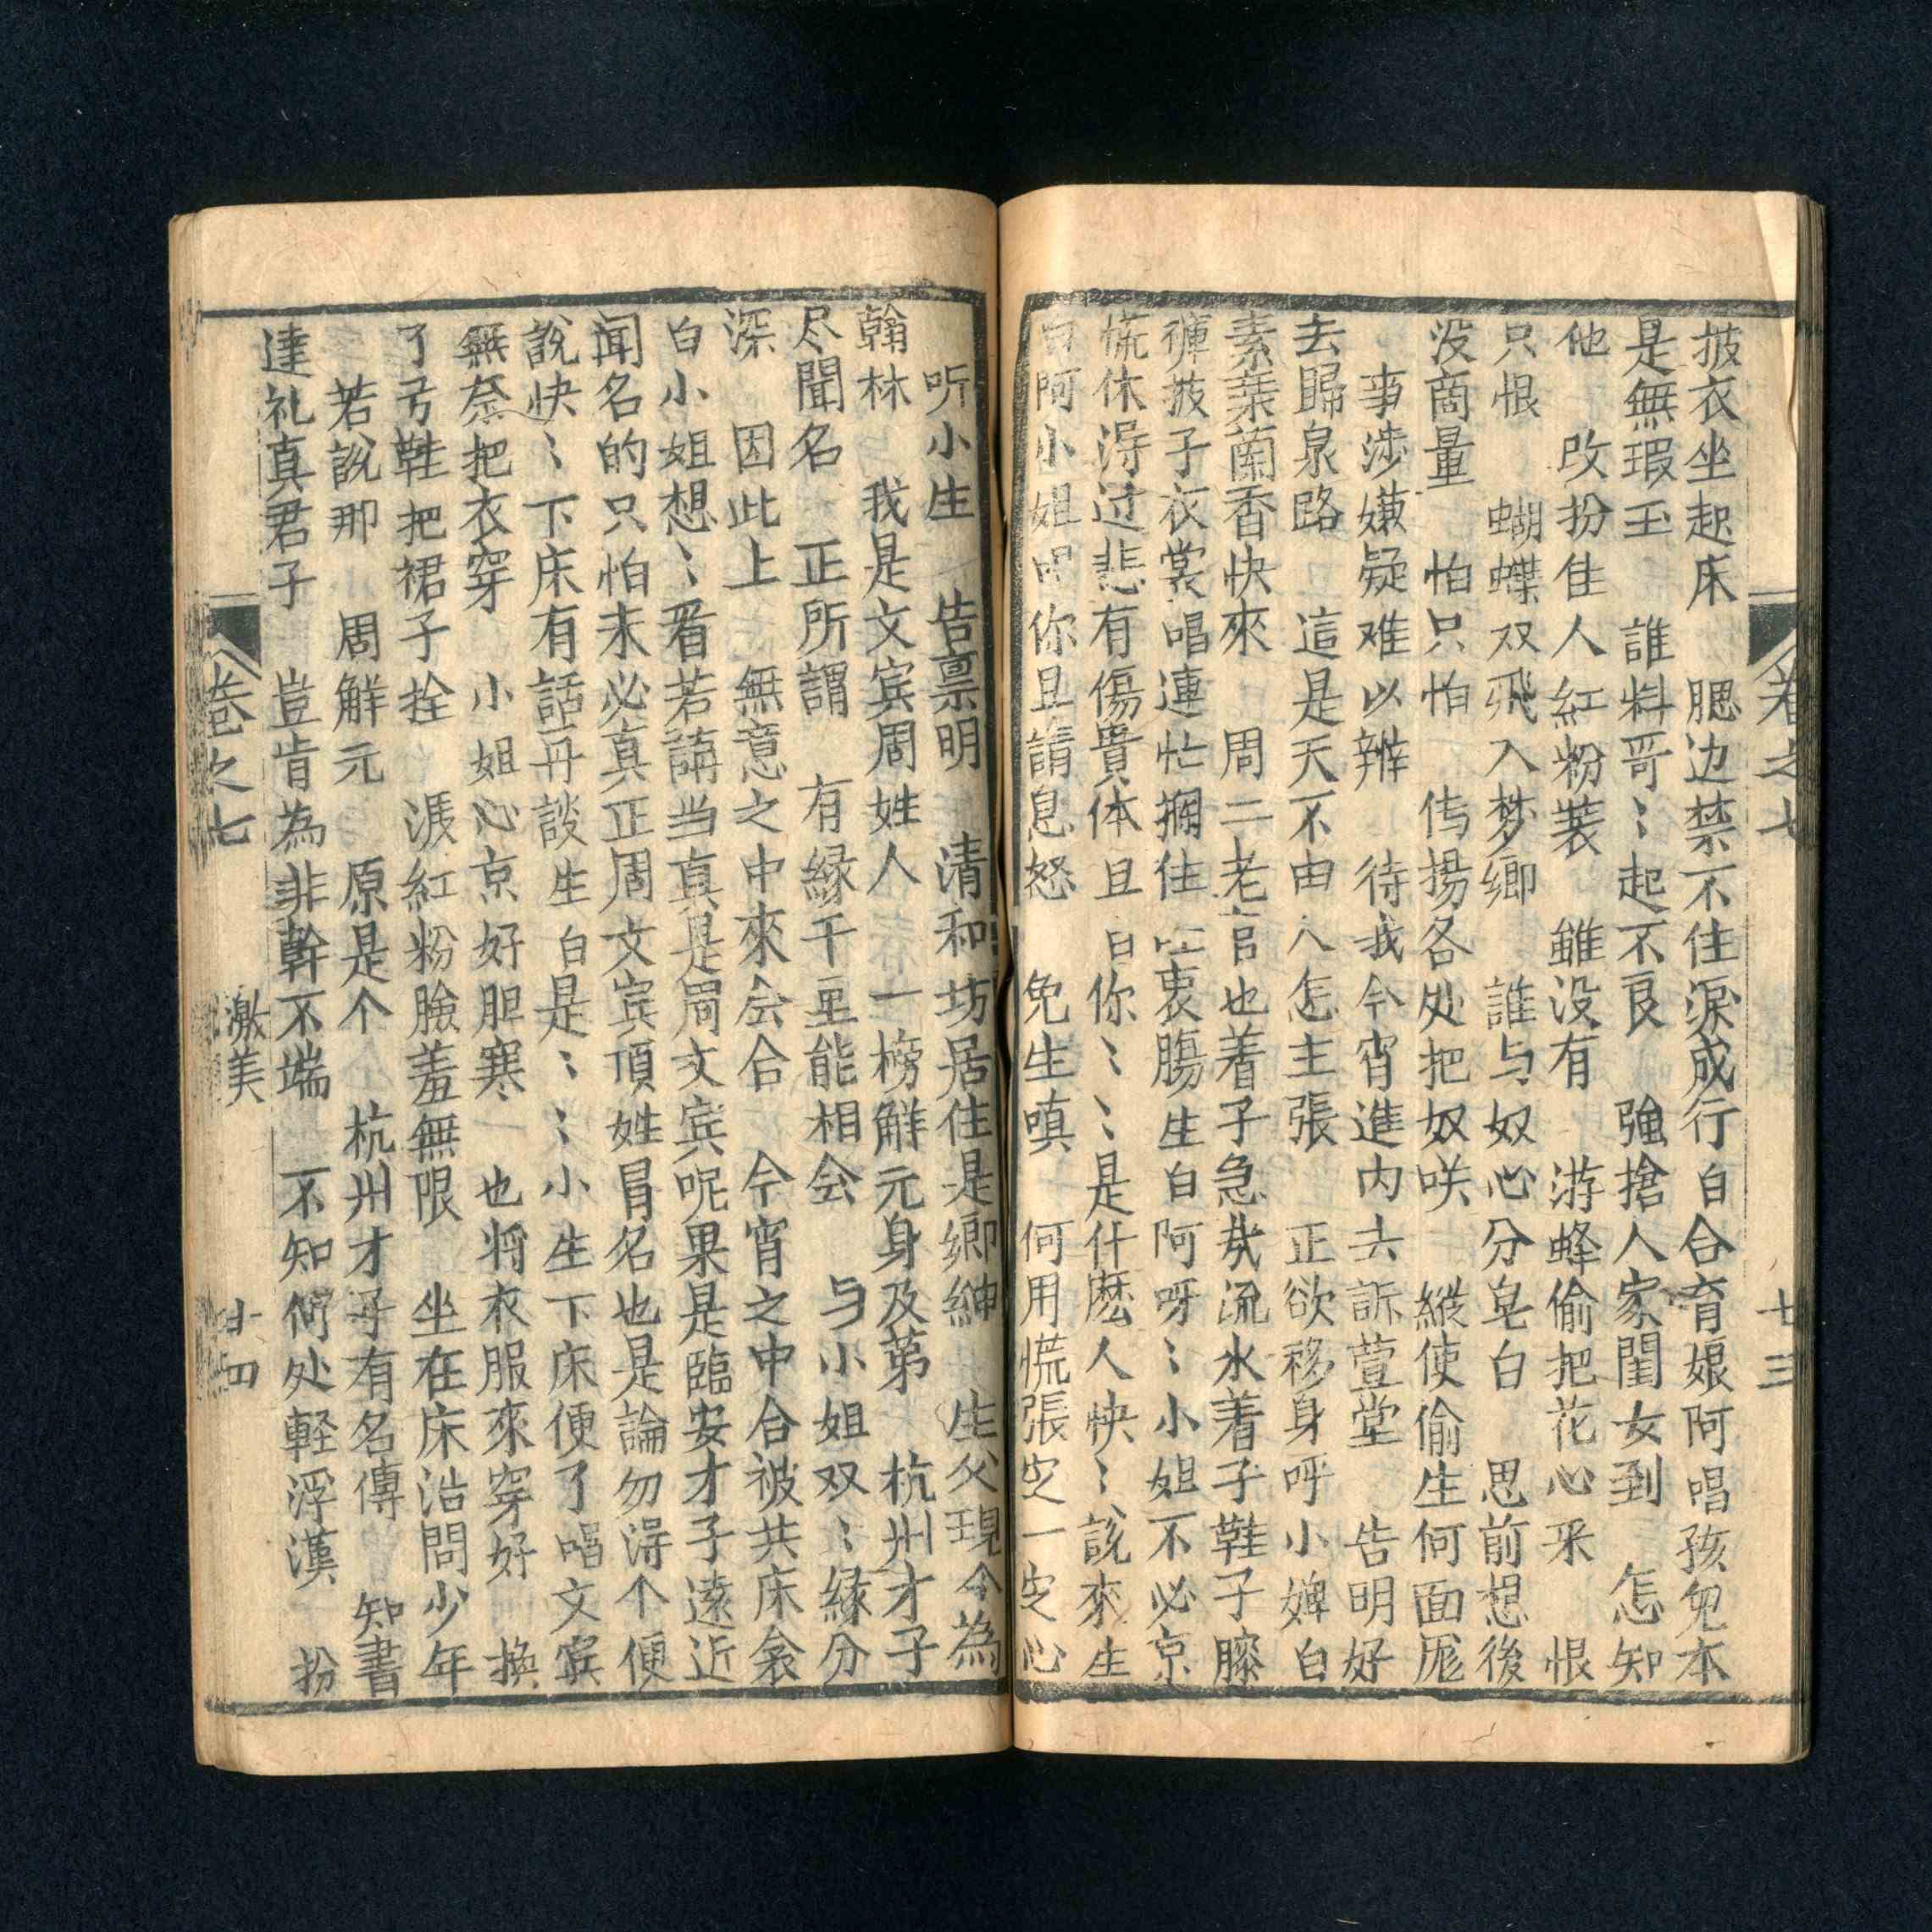 披衣坐起床 腮边禁不住淚成行白合育娘阿唱孩兒本
是無瑕玉 誰料哥〻起不良 強搶人家閨女到 怎知
他 改扮佳人紅粉裝 雖没有 游蜂偷把花心采 恨
只恨 蝴蝶双飛入梦鄉 誰与奴心分皂白 思前想後
没商量 怕只怕 傳揚各处把奴咲 縱使偷生何面厖
事涉嫌疑难以辨 待我今宵進内去訴萱堂 告明好
去歸泉路 這是天不由人怎主張 正欲移身呼小婢白
素葉蘭香快來 周二老官也着子急哉流水着子鞋子膝
褲披子衣裳唱連忙搁住 衷腸生白阿呀〻小姐不必京
慌休淂过悲有傷貴体且白你〻〻是什麽人快〻說來生
白阿小姐唱你且請息怒 免生嗔 何用慌張定一定心
听小生 告禀明 清和坊居住是鄉紳 生父現今為
翰林 我是文宾周姓人 一榜解元身及第 杭州才子
尽聞名 正所謂 有緣千里能相会 与小姐双〻緣分
深 因此上 無意之中來会合 今宵之中合被共床衾
白小姐想〻看若講当真是周文宾呢果是臨安才子遠近
闻名的只怕未必真正周文宾頂姓冒名也是論勿淂个便
說快〻下床有話再談生白是〻〻小生下床便了唱文宾
無奈把衣穿 小姐心京好胆寒 也将衣服來穿好 換
了弓鞋把裙子拴 漲紅粉臉羞無限 坐在床沿問少年
若說那 周解元 原是个 杭州才子有名傳 知書
達礼真君子 豈肯為非幹不端 不知何处軽浮漢 扮
卷之七 七三
卷之七 激美 廿四